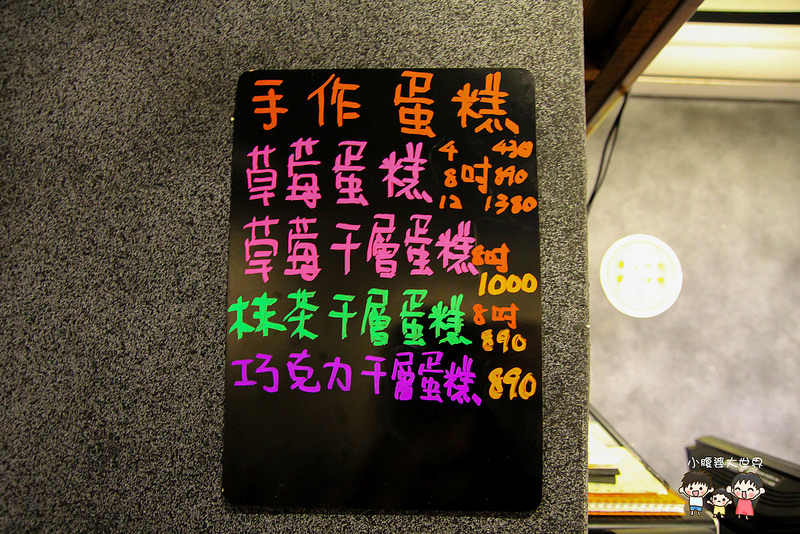 手作蛋糕
草莓蛋糕 4 430
8吋 890
12 1380
草莓千層蛋糕 8吋
1000
抹茶千層蛋糕 8吋
890
巧克力千層蛋糕 890
小腹婆大世界